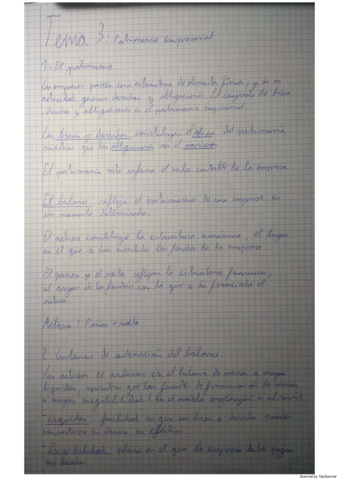 Tema 3: Patrimonio empresarial
1. El patrimonio
Las empresas poseen una estructura de elementos físicos, y en su
actividad generan derechos y obligaciones. El conjunto de bienes
derechos y obligaciones es el patrimonio empresarial.
Los bienes y derechos constituyen el activo del patrimonio,
mientras que las obligaciones son el pasivo.
El patrimonio neto informa el valor contable de la empresa
El balance refleja el patrimonio de una empresa en
un momento determinado.
El activo constituye la estructura económica, el lugar
en el que se han invertido los fondos de la empresa
El pasivo y el neto reflejan la estructura financiera,
el origen de los fondos con los que se ha financiado el
activo.
Activo = Pasivo + neto
2. Criterios de ordenación del balance.
Los activos se ordenan en el balance de menor a mayor
liquidez, mientras que las fuentes de financiación de menor
a mayor exigibilidad. (Es el modelo
-Liquidez: facilidad en que un bien o derecho puede
convertirse en dinero en efectivo
-Exigibilidad: plazo en el que la empresa debe pagar
sus deudas
Scanned by TapScanner